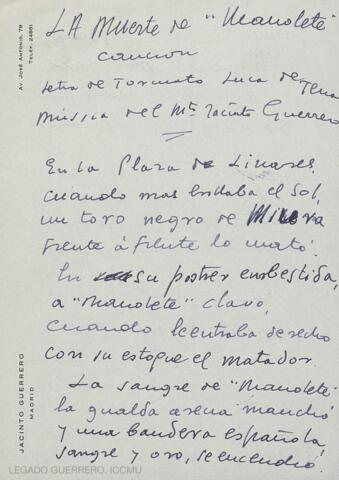 LA Muerte de "Manolete"
canción
Letra de Torcuato Luca de Tena
música del Mtº Jacinto Guerrero
En la Plaza de Linares,
cuando mas brillaba el sol,
un toro negro de Miura
frente á frente lo mató.
En su postrer embestida,
a "Manolete" clavo,
cuando le entraba derecho
con su estoque el matador.
La sangre de "Manolete"
la gualda arena manchó
y una bandera española,
sangre y oro, se encendió.
AV. JOSÉ ANTONIO, 78
TELÉF. 24861
JACINTO GUERRERO
MADRID
LEGADO GUERRERO. ICCMU